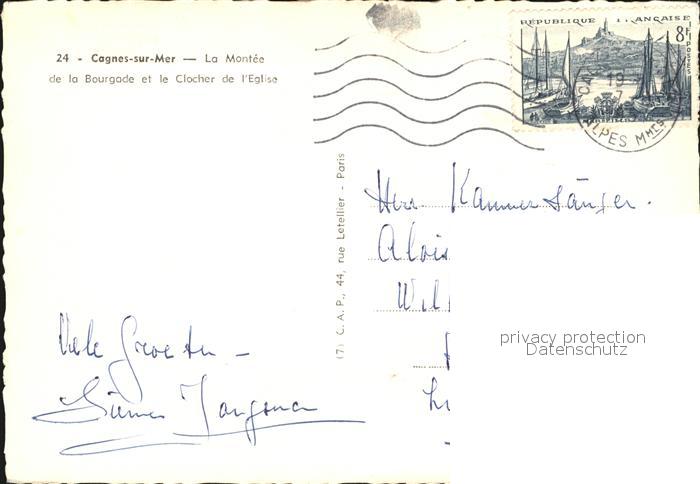 24 - Cagnes-sur-Mer — La Montée
de la Bourgade et le Clocher de l'Eglise
RÉPUBLIQUE FRANÇAISE
8F
POSTES
19
7
ALPES Mmes
(7) C. A. P., 44, rue Letellier - Paris
Herr Kammersänger.
Alois
privacy protection
Datenschutz
Vele Groeten –